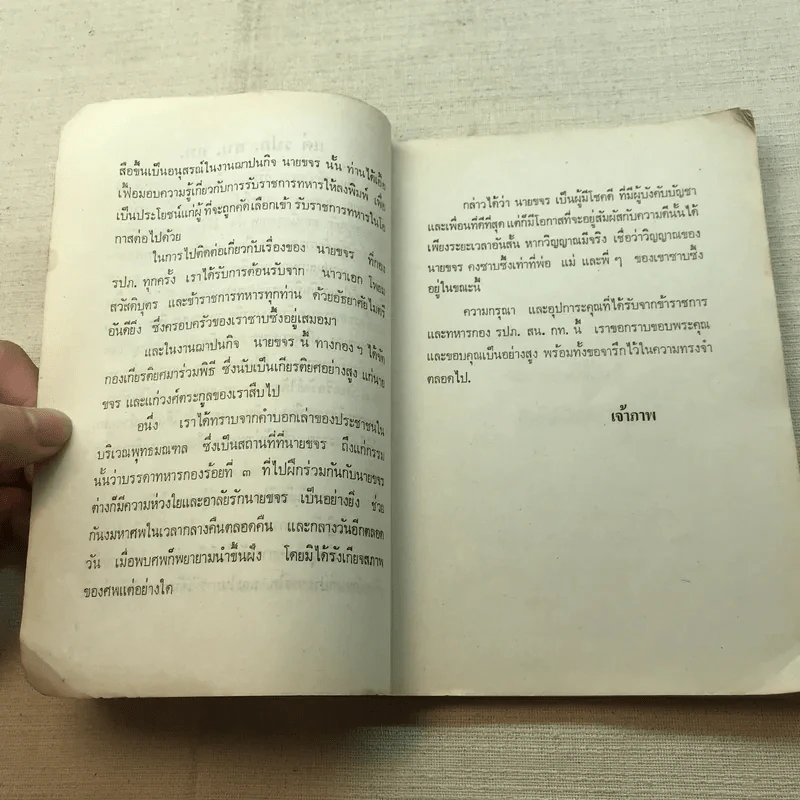 สือขึ้นเป็นอนุสรณ์ในงานฌาปนกิจ นายขจร นั้น ท่านได้เอื้อ
เฟื้อมอบความรู้เกี่ยวกับการรับราชการทหารให้ลงพิมพ์ เพื่อ
เป็นประโยชน์แก่ผู้ที่จะถูกคัดเลือกเข้า รับราชการทหารในโอ
กาสต่อไปด้วย
ในการไปติดต่อเกี่ยวกับเรื่องของ นายขจร ที่กอง
รปภ. ทุกครั้ง เราได้รับการต้อนรับจาก นาวาเอก
สวัสดิบุตร และข้าราชการทหารทุกท่าน ด้วยอัธยาศัยไมตรี
อันดียิ่ง ซึ่งครอบครัวของเราซาบซึ้งอยู่เสมอมา
และในงานฌาปนกิจ นายขจร นี้ ทางกองฯ ได้จัด
กองเกียรติยศมาร่วมพิธี ซึ่งนับเป็นเกียรติยศอย่างสูง แก่นาย
ขจร และแก่วงศ์ตระกูลของเราสืบไป
อนึ่ง เราได้ทราบจากคำบอกเล่าของประชาชนใน
บริเวณพุทธมณฑล ซึ่งเป็นสถานที่ที่นายขจร ถึงแก่กรรม
นั้นว่าบรรดาทหารกองร้อยที่ ๓ ที่ไปฝึกร่วมกันกับนายขจร
ต่างก็มีความห่วงใยและอาลัยรักนายขจร เป็นอย่างยิ่ง ช่วย
กันงมหาศพในเวลากลางคืนตลอดคืน และกลางวันอีกตลอด
วัน เมื่อพบศพก็พยายามนำขึ้นฝั่ง โดยมิได้รังเกียจสภาพ
ของศพแต่อย่างใด
กล่าวได้ว่า นายขจร เป็นผู้มีโชคดี ที่มีผู้บังคับบัญชา
และเพื่อนที่ดีที่สุด แต่ก็มีโอกาสที่จะอยู่สัมผัสกับความดีนั้นได้
เพียงระยะเวลาอันสั้น หากวิญญาณมีจริง เชื่อว่าวิญญาณของ
นายขจร คงซาบซึ้งเท่าที่พ่อ แม่ และพี่ ๆ ของเขาซาบซึ้ง
อยู่ในขณะนี้
ความกรุณา และอุปการะคุณที่ได้รับจากข้าราชการ
และทหารกอง รปภ. สน. กท. นี้ เราขอกราบขอบพระคุณ
และขอบคุณเป็นอย่างสูง พร้อมทั้งขอจารึกไว้ในความทรงจำ
ตลอดไป.
เจ้าภาพ